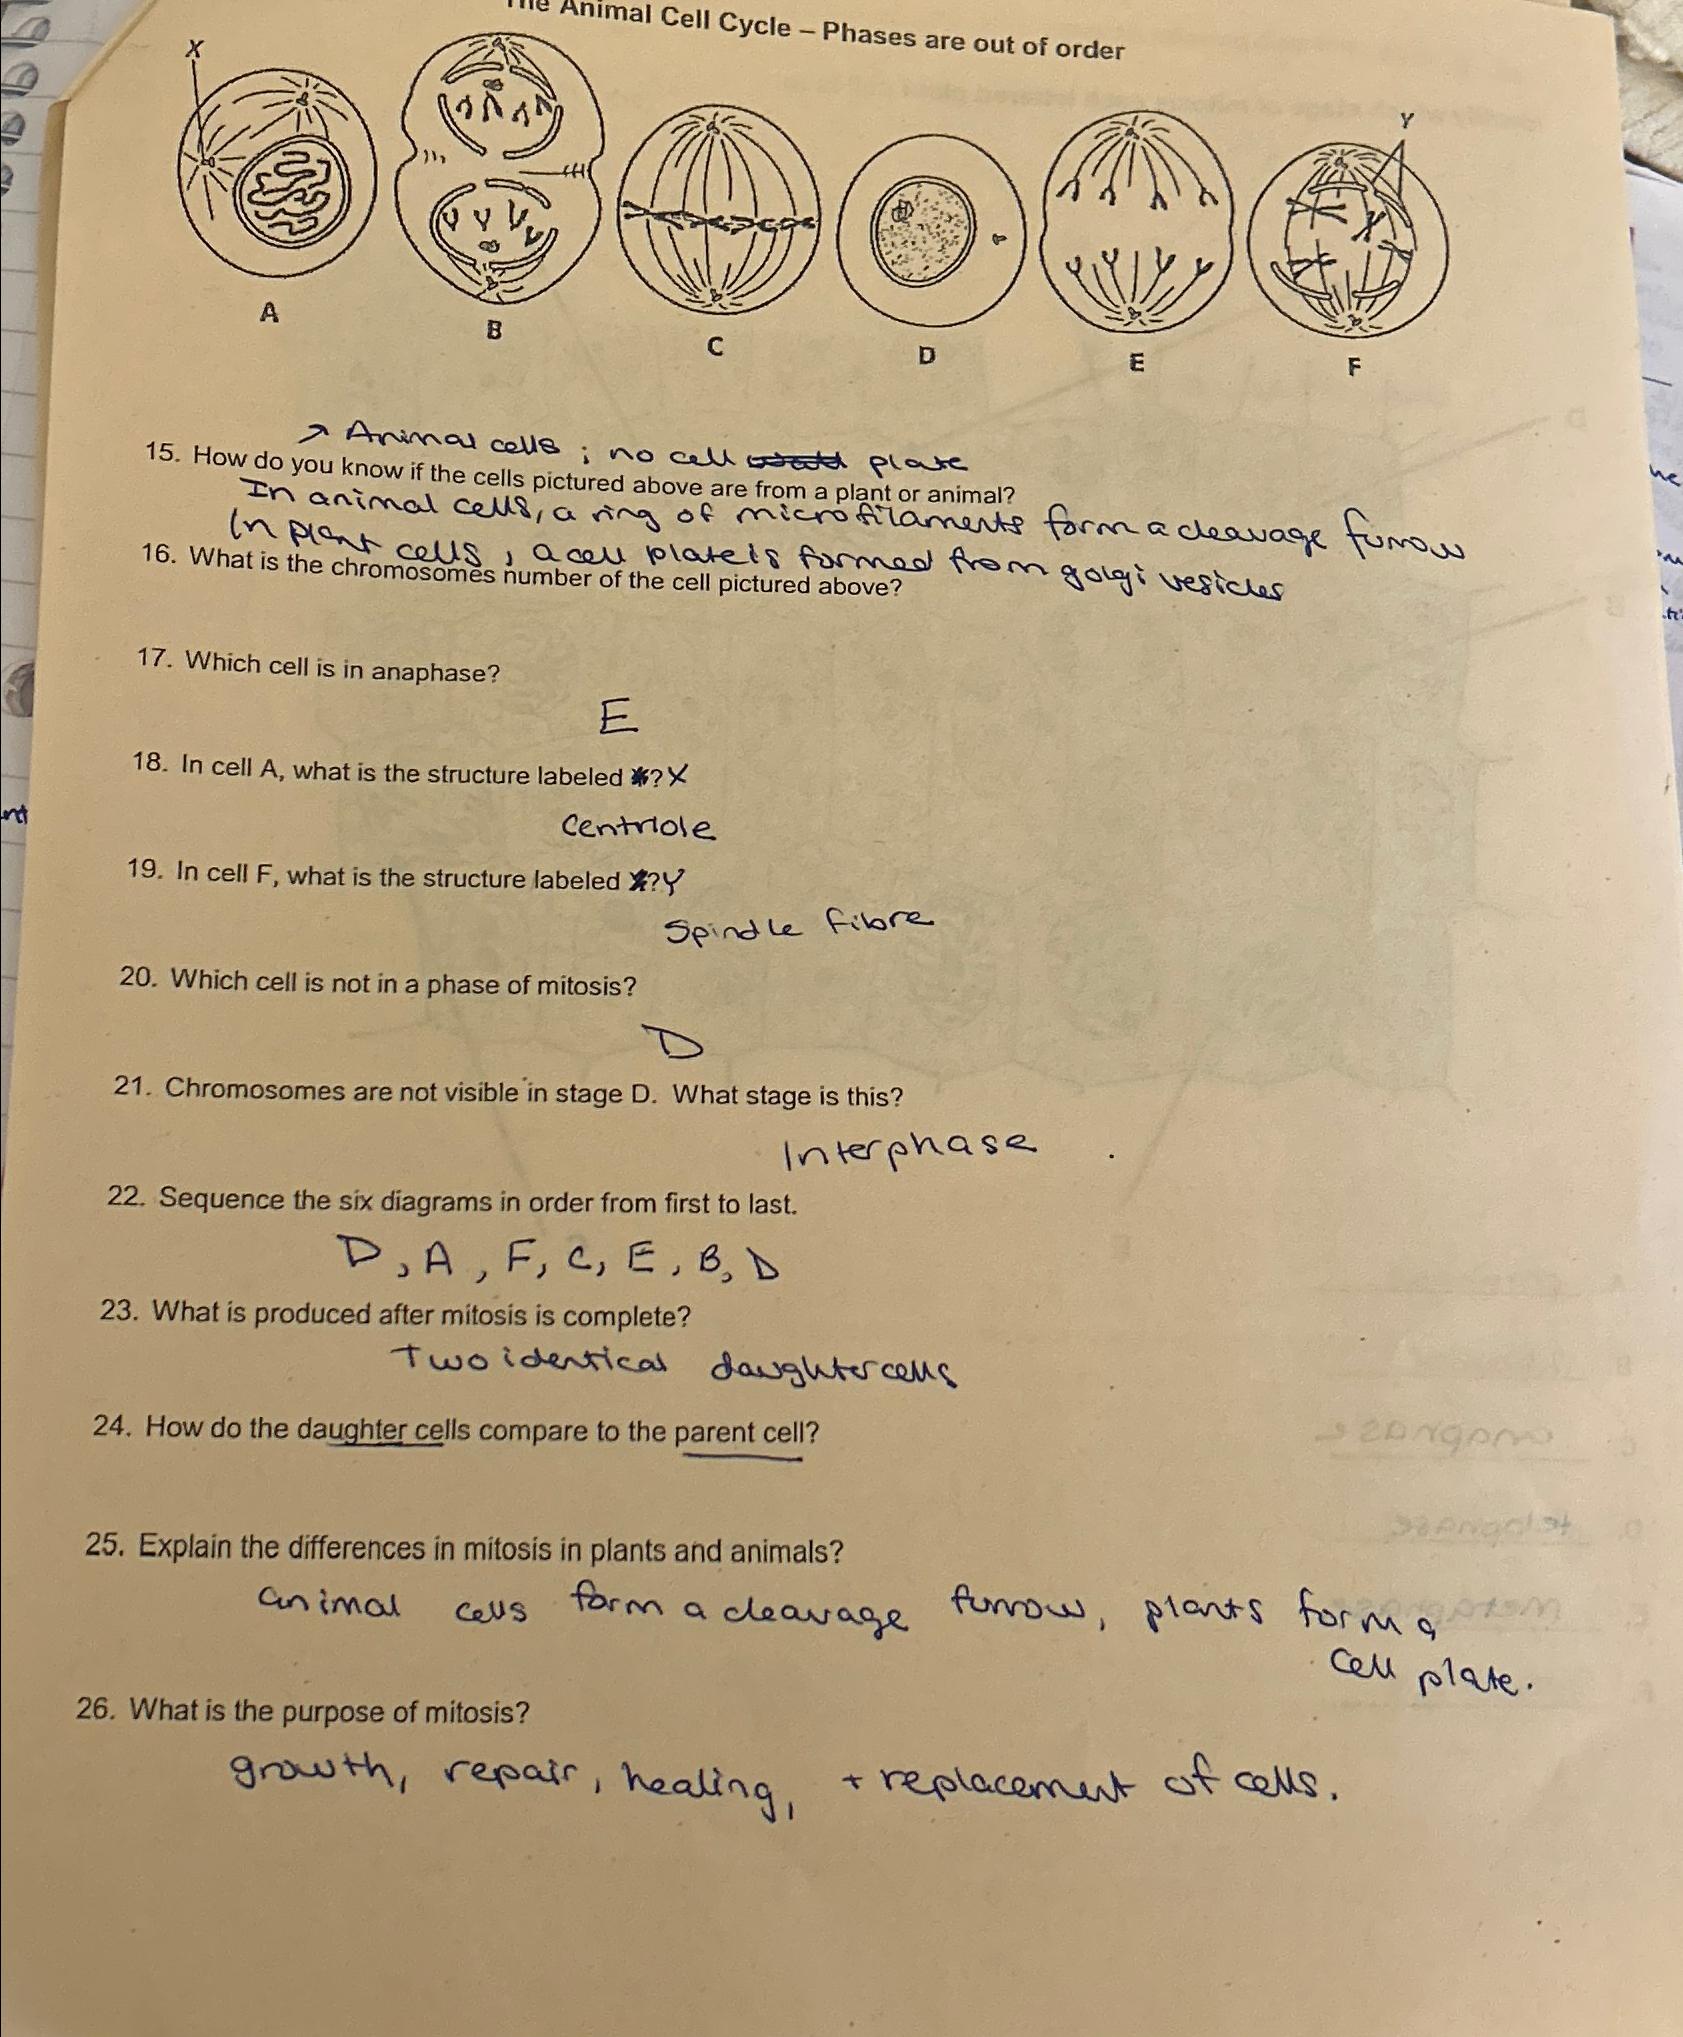 The Animal Cell Cycle – Phases are out of order
X
Y
A
B
C
D
E
F
→ Animal cells ; no cell plate
15. How do you know if the cells pictured above are from a plant or animal?
In animal cells, a ring of microfilaments form a cleavage furrow
In plant cells, a cell plate is formed from golgi vesicles
16. What is the chromosomes number of the cell pictured above?
17. Which cell is in anaphase?
E
18. In cell A, what is the structure labeled ? X
Centriole
19. In cell F, what is the structure labeled ? Y
Spindle fibre
20. Which cell is not in a phase of mitosis?
D
21. Chromosomes are not visible in stage D. What stage is this?
Interphase
22. Sequence the six diagrams in order from first to last.
D, A, F, C, E, B, D
23. What is produced after mitosis is complete?
Two identical daughter cells
24. How do the daughter cells compare to the parent cell?
25. Explain the differences in mitosis in plants and animals?
animal cells form a cleavage furrow, plants form a
cell plate.
26. What is the purpose of mitosis?
growth, repair, healing, + replacement of cells.